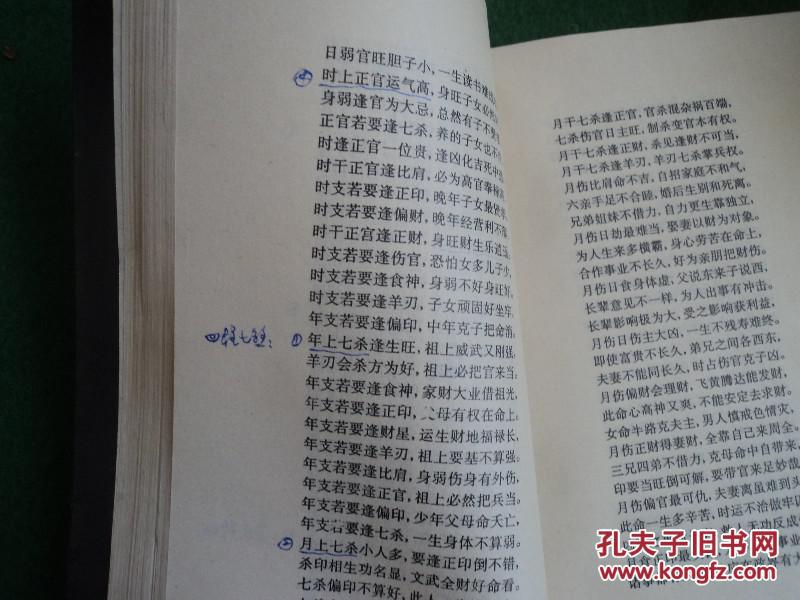 日弱官旺胆子小，一生读书难
④
时上正官运气高，身旺子女必
身弱逢官为大忌，总然有子不
正官若要逢七杀，养的子女也不
时逢正官一位贵，逢凶化吉死中
时干正官逢比肩，必为高官奉
时支若要逢正印，晚年子女最
时支若要逢偏财，晚年经营利不
时干正官逢正财，身旺财生乐逍
时支若要逢伤官，恐怕女多儿子少，
时支若要逢食神，身弱不好身正好。
时支若要逢羊刃，子女顽固好坐牢，
年支若要逢偏印，中年克子把命消。
四柱七杀：
①
年上七杀逢生旺，祖上威武又刚强，
羊刃会杀方为好，祖上必把官来当。
年支若要逢食神，家财大业借祖光，
年支若要逢正印，父母有权在命上。
年支若要逢财星，运生财地福禄长，
年支若要逢羊刃，祖上要基不算强。
年支若要逢比肩，身弱伤身有外伤，
年支若要逢正官，祖上必然把兵当。
年支若要逢偏印，少年父母命夭亡，
年支若要逢七杀，一生身体不算弱。
②
月上七杀小人多，要逢正印倒不错，
杀印相生功名显，文武全财好命看。
七杀偏印不算好，此人
月干七杀逢正官，官杀混杂祸百端，
七杀伤官日主旺，制杀变官本有权。
月干七杀逢正财，杀见逢财不可当，
月干七杀逢羊刃，羊刃七杀掌兵权。
月伤比肩命不吉，自招家庭不和气，
六亲手足不合睦，婚后生别和死离。
兄弟姐妹不借力，自力更生靠独立，
月伤日劫最难当，娶妻以财为对象。
为人生来多横霸，身心劳苦在命上，
合作事业不长久，好为亲朋把财伤。
月伤日食身体虚，父说东来子说西，
长辈意见不一样，为人出事有冲击。
长辈影响极为大，受之影响获利益，
月伤日伤主大凶，一生不残寿难终。
即使富贵不长久，弟兄之间各西东，
夫妻不能同长久，时占伤官克子凶。
月伤偏财会理财，飞黄腾达能发财，
此命心高神又爽，不能安定去求财。
女命半路克夫主，男人慎戒色情灾，
月伤正财得妻财，全靠自己来周全。
三兄四弟不借力，克母命中自带来，
印要当旺倒可解，要带官来足妙哉
月伤偏官最可仇，夫妻离虽难到头
此命一生多辛苦，时运不治傲牢
孔夫子旧书网
www.kongfz.com